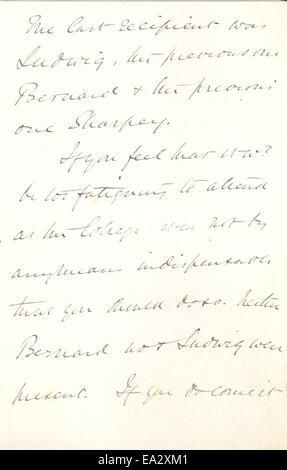 The last recipient was
Ludwig, the previous one
Bernard & the previous
one Sharpey.
If you feel that it wd.
be too fatiguing to attend
at the College it is not by
any means indispensable
that you should do so. Neither
Bernard nor Ludwig were
present. If you do come it
alamy
alamy
EA2XM1
www.alamy.com